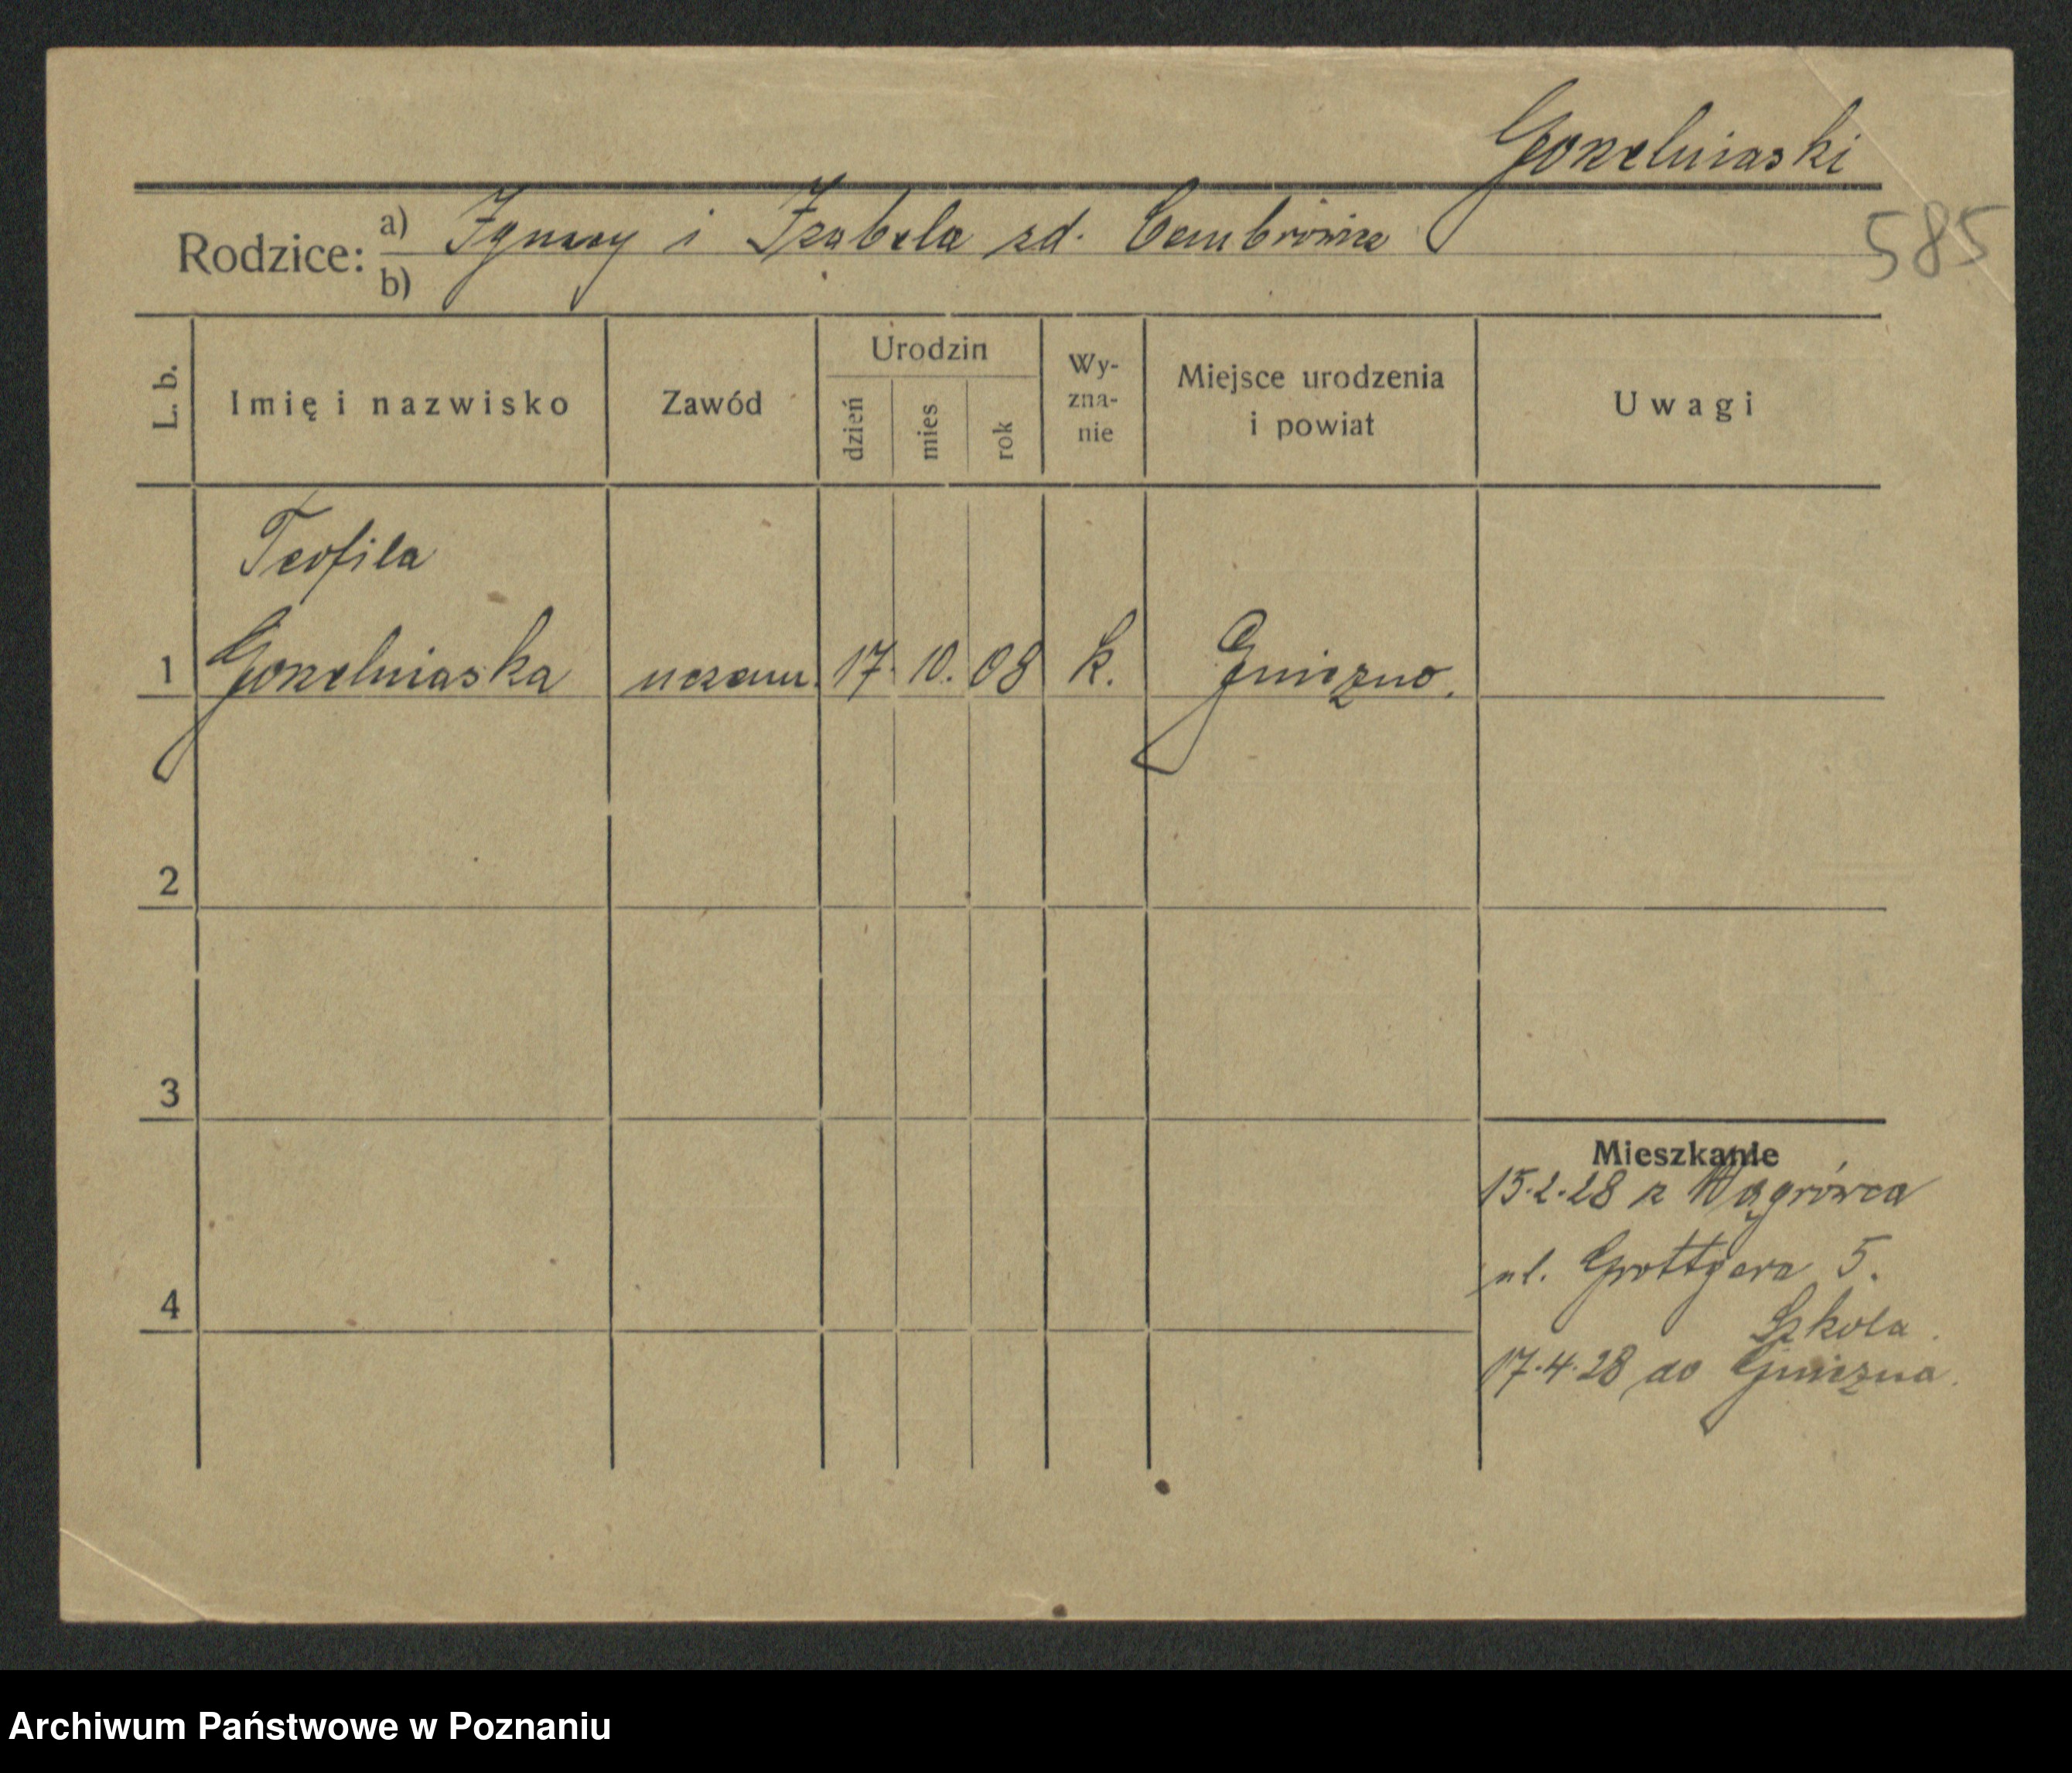 Gorzelniaski
585
Rodzice: a) Ignacy i Izabela zd.
b)
L. b. Imię i nazwisko Zawód Urodzin dzień mies rok Wy-zna-nie Miejsce urodzenia i powiat Uwagi
Teofila
1 Gorzelniaska uczenn. 17. 10. 08 k. Gniezno.
2
3
Mieszkanie
15.2.28 z Wągrówca
ul. Grottgera 5.
4
Szkola.
17.4.28 do Gniezna.
Archiwum Państwowe w Poznaniu